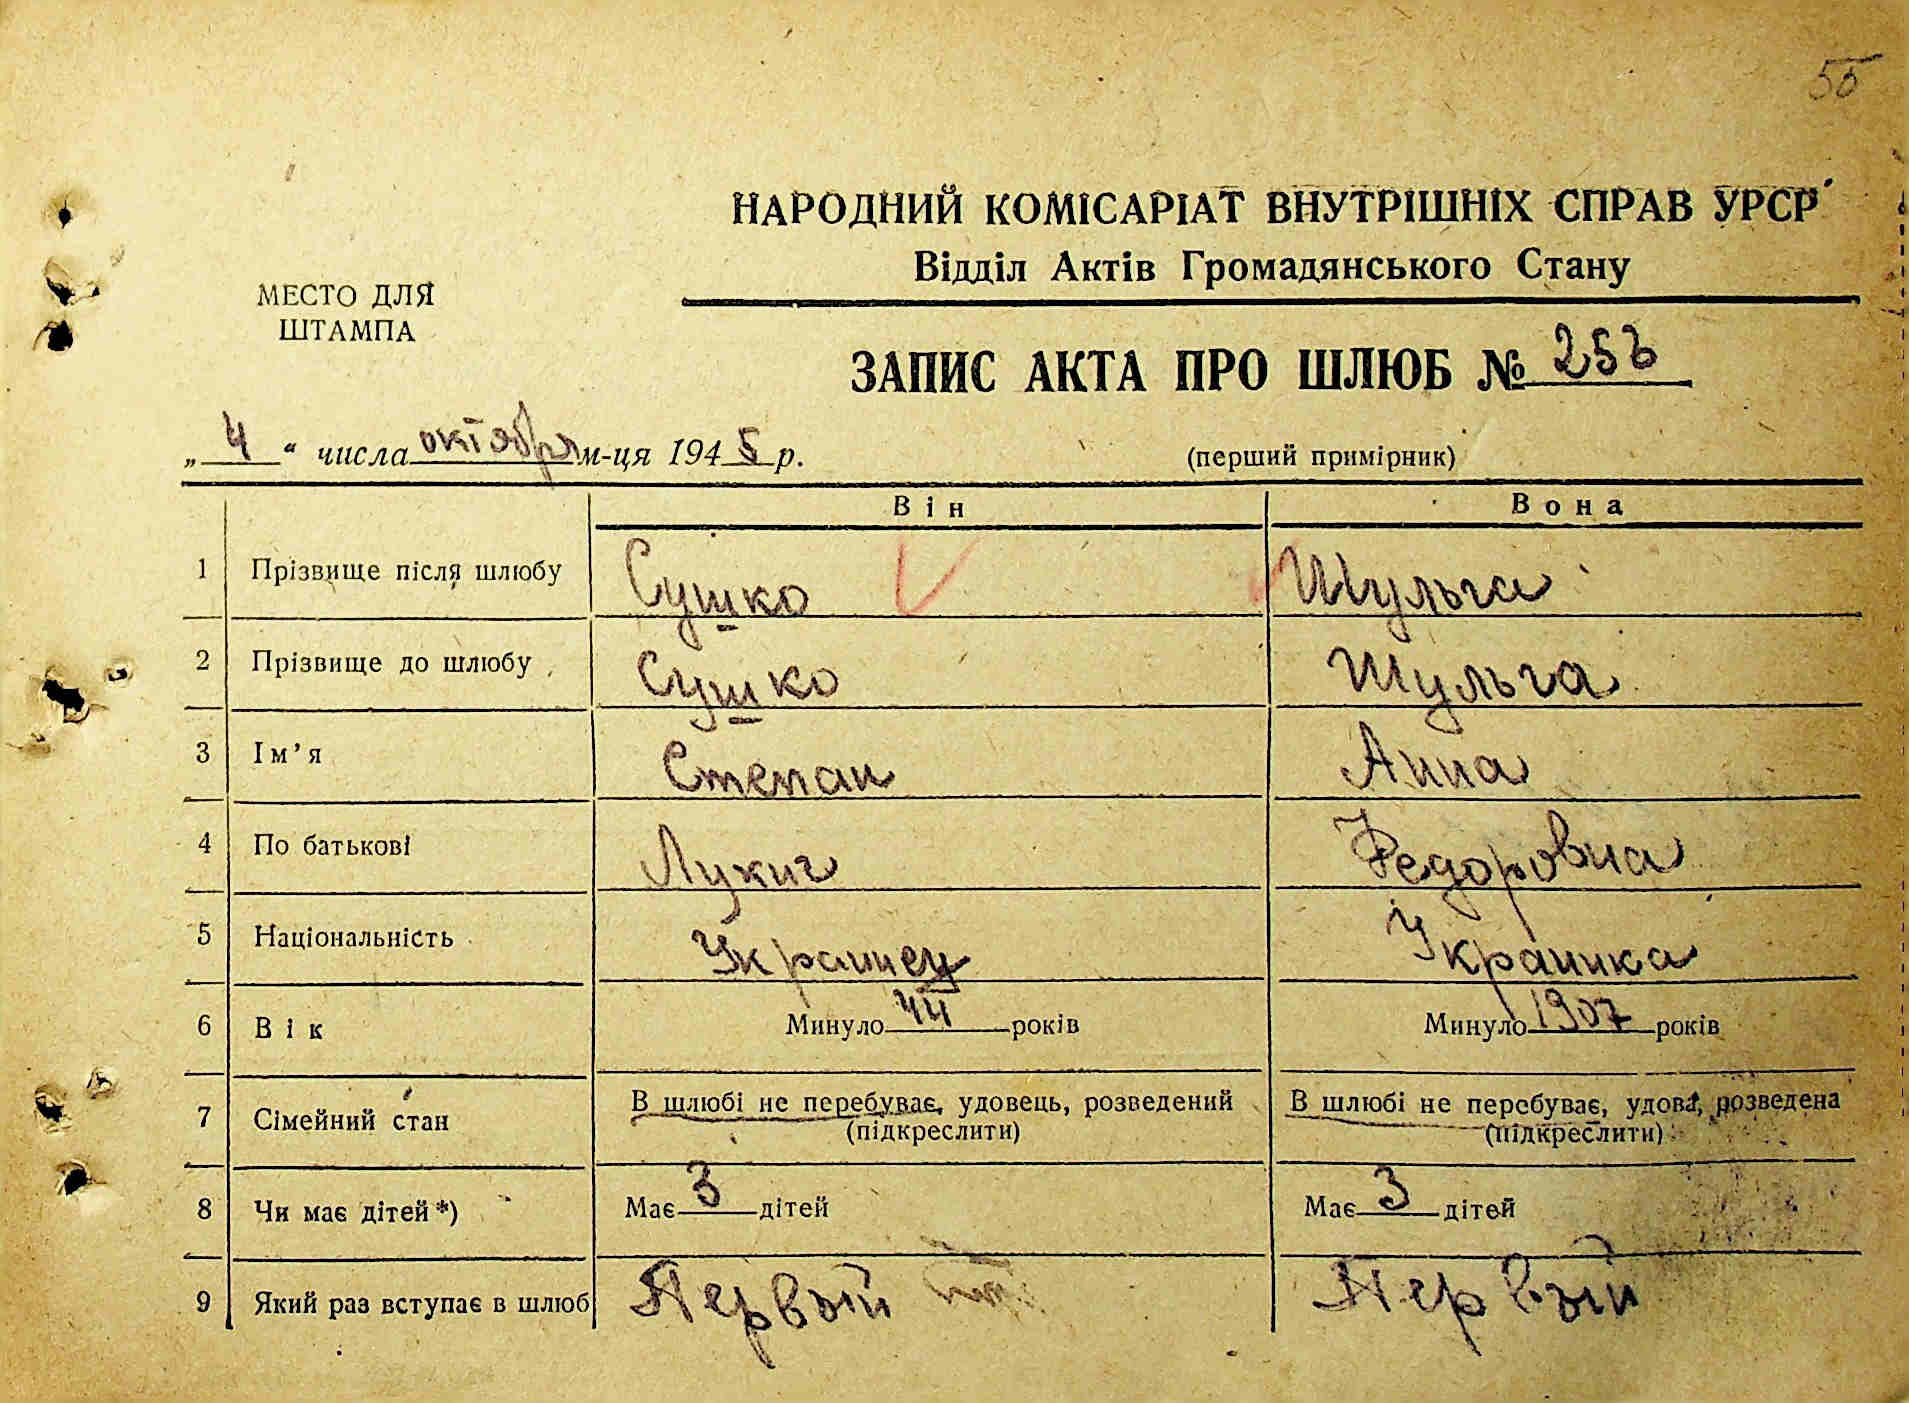 55
НАРОДНИЙ КОМІСАРІАТ ВНУТРІШНІХ СПРАВ УРСР
Відділ Актів Громадянського Стану
МЕСТО ДЛЯ
ШТАМПА
ЗАПИС АКТА ПРО ШЛЮБ № 253
„ 4 “ числа октября м-ця 1945 р.
(перший примірник)
Він Вона
1 Прізвище після шлюбу Сушко Шульга
2 Прізвище до шлюбу Сушко Шульга
3 Ім’я Степан Анна
4 По батькові Лукич Федоровна
5 Національність Украинец Украинка
6 Вік Минуло 44 років Минуло 1907 років
7 Сімейний стан В шлюбі не перебуває, удовець, розведений В шлюбі не перебуває, удова, розведена
(підкреслити) (підкреслити)
8 Чи має дітей *) Має 3 дітей Має 3 дітей
9 Який раз вступає в шлюб Первый Первый